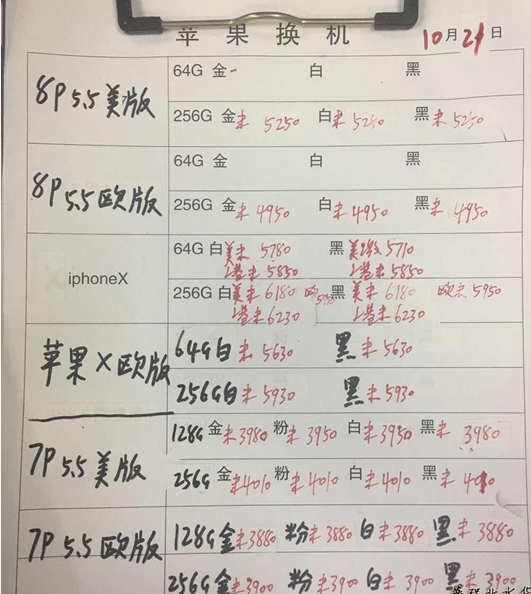 苹果换机 10月21日
8P 5.5美版
64G 金- 白 黑
256G 金未 5250 白未 5250 黑未 5250
8P 5.5欧版
64G 金 白 黑
256G 金未 4950 白未 4950 黑未 4950
iphoneX
64G 白美未 5780 黑 美 5710
港未 5850 港未 5850
256G 白美未 6180 欧 5950 黑 美未 6180 欧未 5950
港未 6230 港未 6230
苹果X欧版
64G白未 5630 黑未 5630
256G白未 5930 黑未 5930
7P 5.5美版
128G 金未 3980 粉未 3950 白未 3950 黑未 3980
256G 金未4010 粉未 4010 白未 4010 黑未 4010
7P 5.5欧版
128G 金未3880 粉未 3880 白未 3880 黑未 3880
256G 金未3900 粉未 3900 白未 3900 黑未 3900